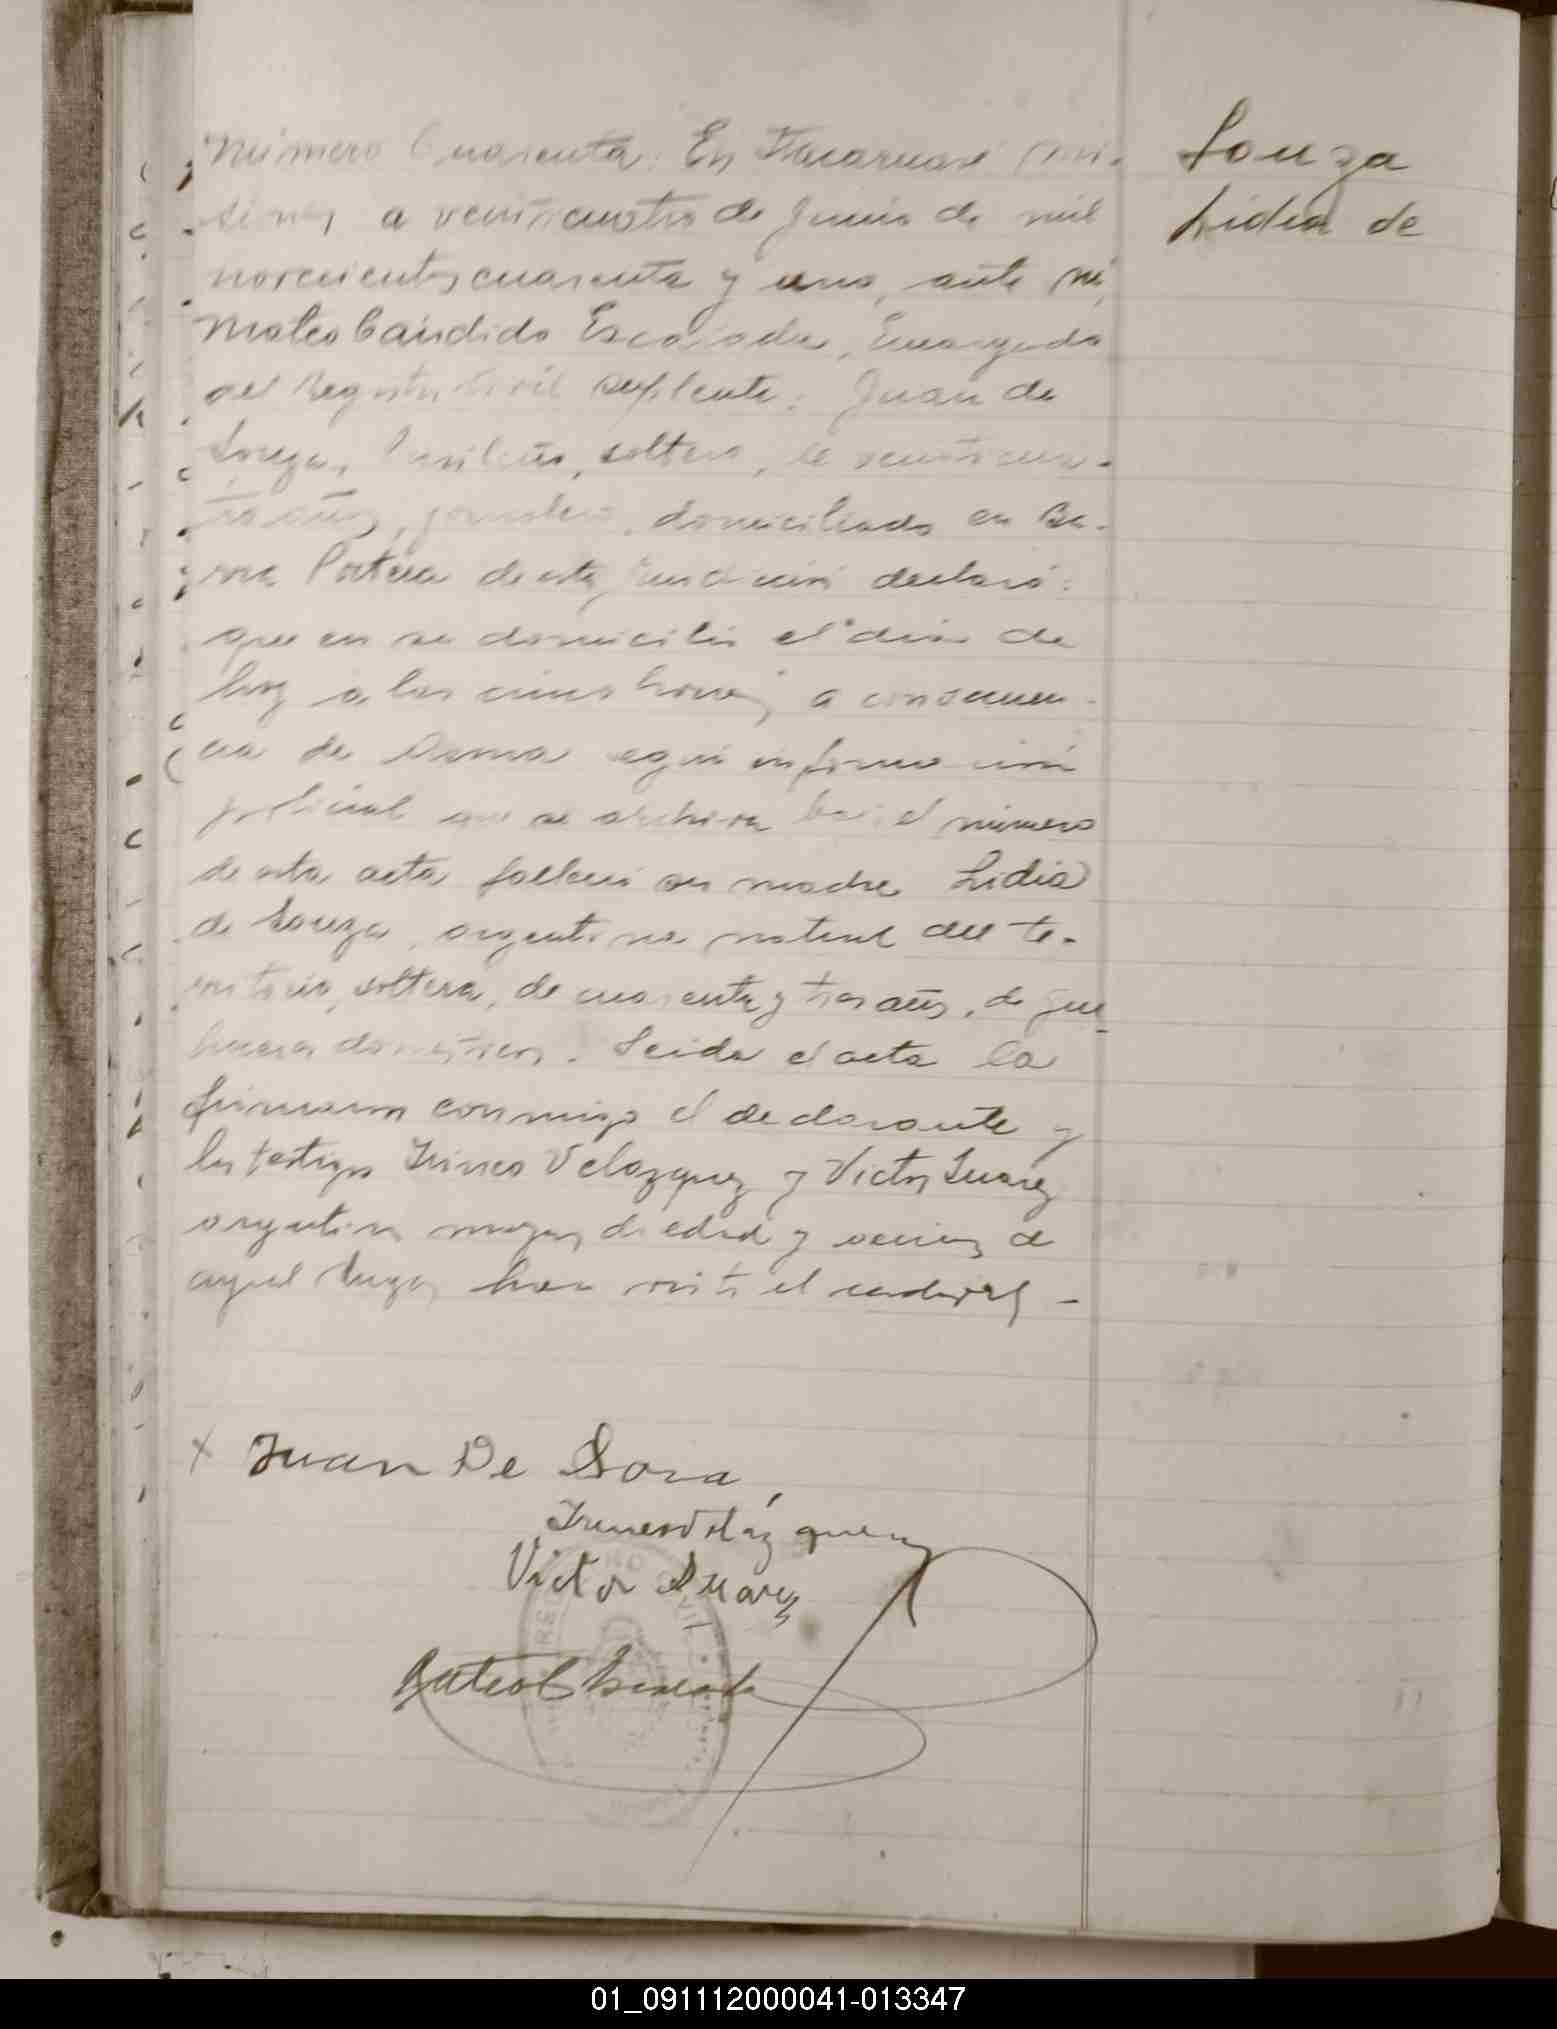 Número Cuarenta. En Itacaruaré (Mi-
siones) a veinticuatro de Junio de mil
novecientos cuarenta y uno, ante mi,
Mateo Cándido Escalada, Encargado
del Registro Civil suplente: Juan de
Souza, brasileño, soltero, de veinticua-
tro años, jornalero, domiciliado en Ba-
rra Portera de esta jurisdicción declaró:
que en su domicilio el dia de
hoy a las cinco horas, a consecuen-
cia de Asma según información
policial que se archiva bajo el número
de esta acta falleció su madre Lidia
de Souza, argentina natural del te-
rritorio, soltera, de cuarenta y tres años, de que-
haceres domésticos. Leida el acta la
firmaron conmigo el declarante y
los testigos Irineo Velazquez y Victor Suarez
argentinos mayores de edad y vecinos de
aquel lugar han visto el cadaver -
Souza
Lidia de
x Juan De Sosa,
Irineo Velázquez
Victor Suarez
Mateo C Escalada
01_091112000041-013347